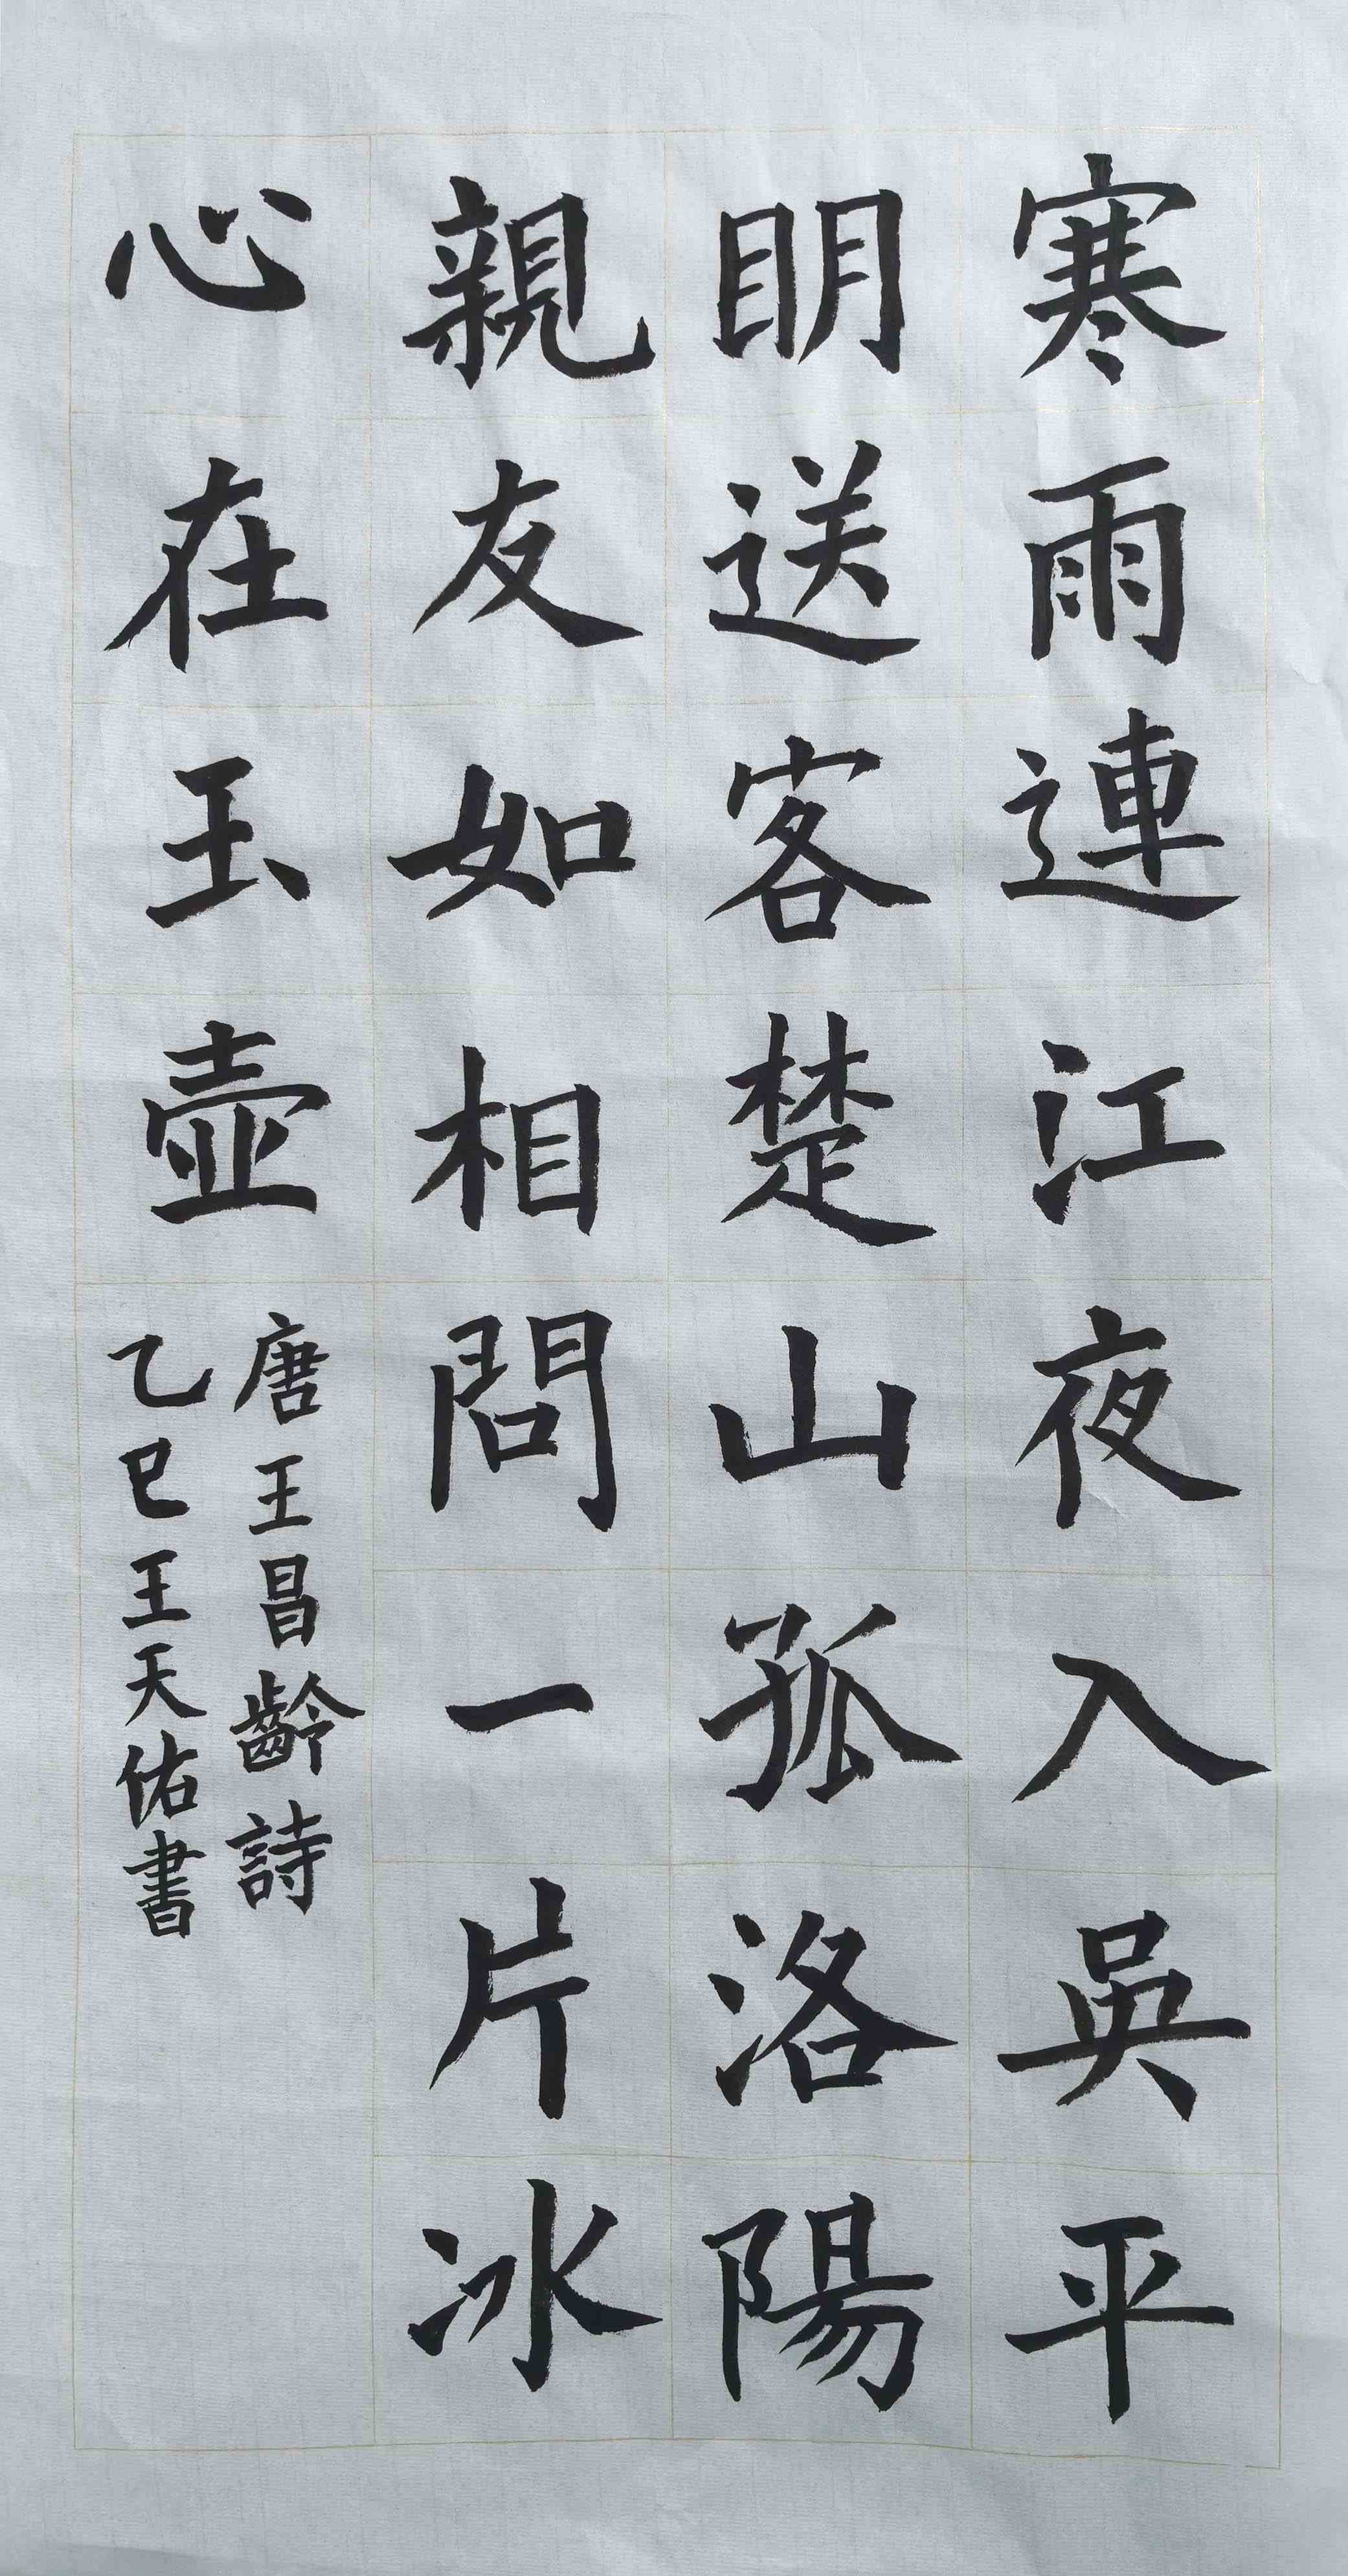 寒雨連江夜入吳平
明送客楚山孤洛陽
親友如相問一片冰
心在玉壺
唐王昌齡詩
乙巳王天佑書